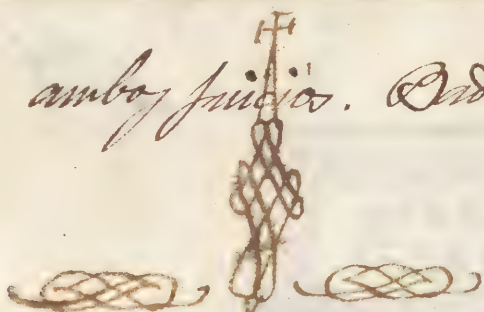 ambos juicios. Dad